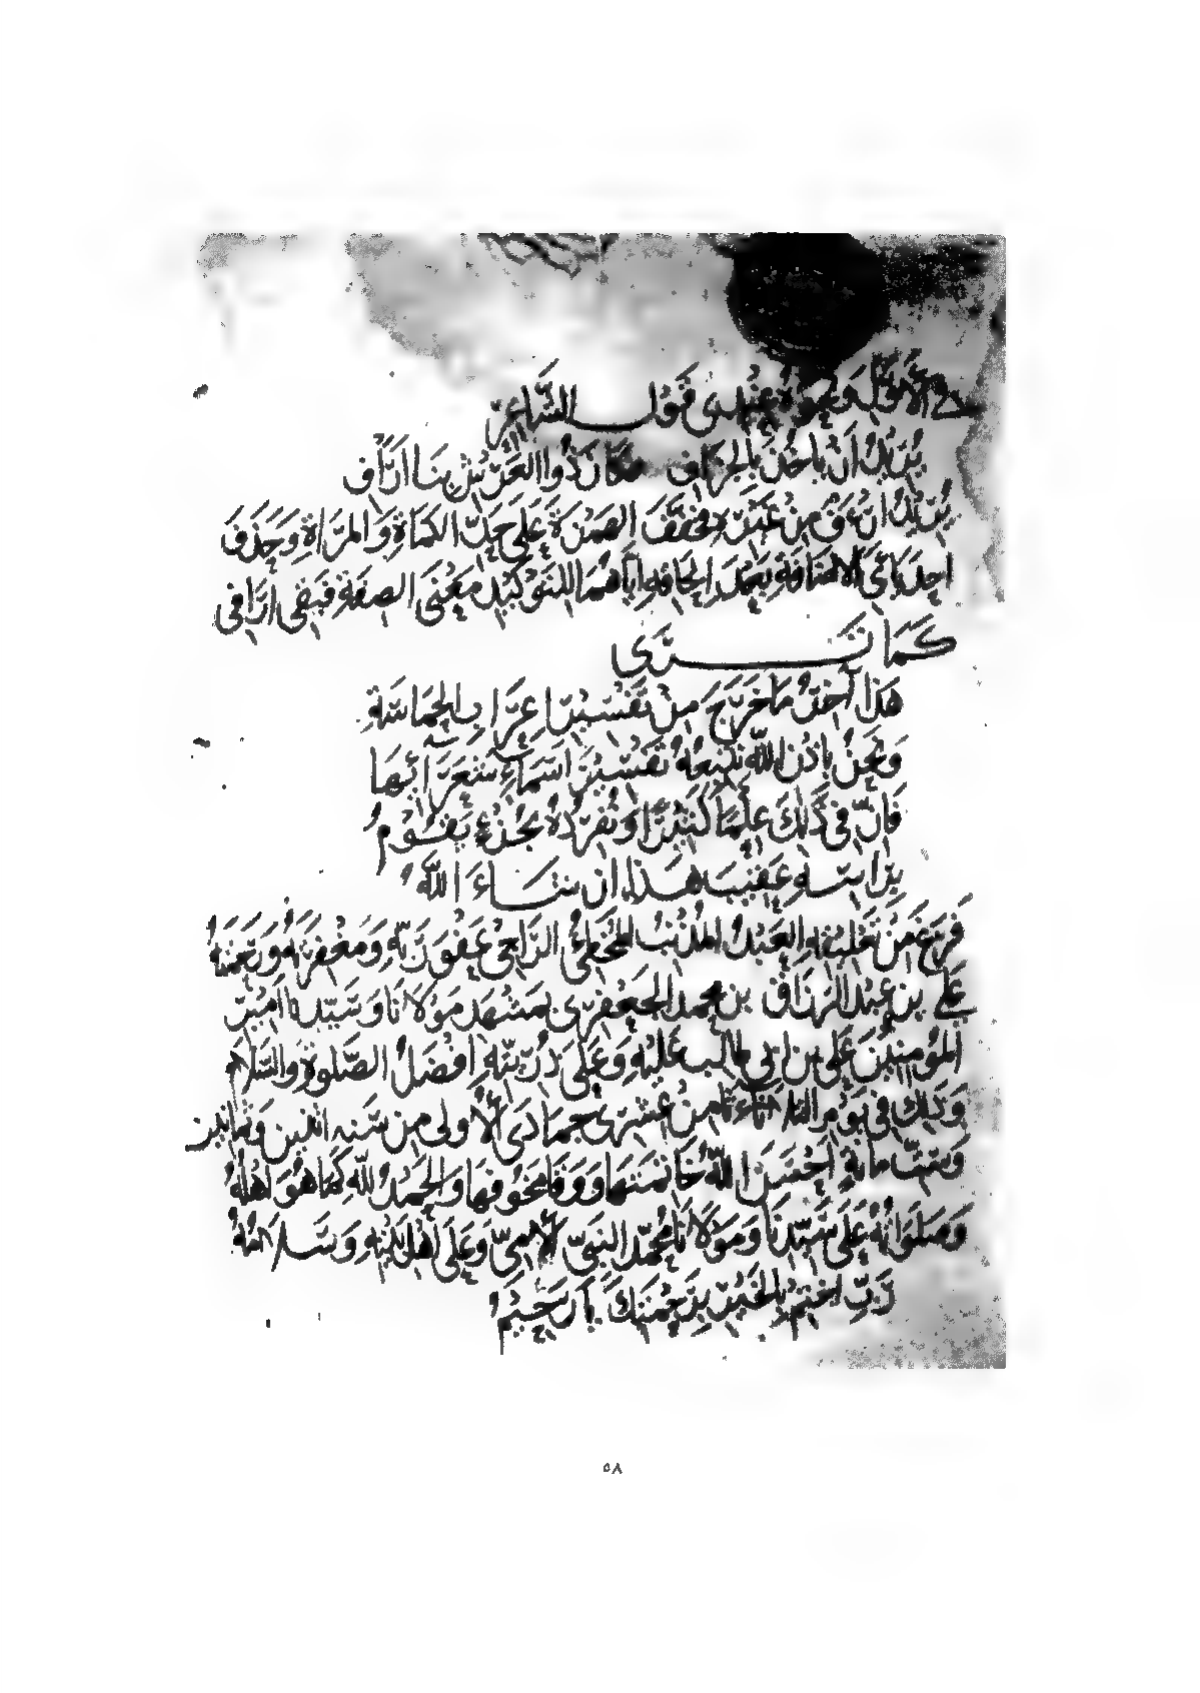 في الأمثلة ونحوه عندي قول الشاعر
يُرِيدُ أنْ يأخُذَ بالجزاف فكان ذُوا العَرْشِ بنَا أرَافِ
يُرِيدُ أرْءَفَ من غيره فخفَّفَ الهمزةَ على حَدِّ الكماةِ والمراةِ وحذفَ
احدى يائَي الاضافة بعد إلحاقه اياهما للتوكيد معنَى الصفة فبقى ارَافِى
كما تَرَى
هَذَا آخِرُ ما خرجَ من تَفسيرِ إعراب الحماسَةِ
ونَحنُ باذن الله نُتبعُهُ تفسيرَ اسماءِ شعرائها
فإنّ في ذَلكَ علمًا كثيرًا ونُفرِدُهُ بجُزءٍ يَقُومُ
برَاسهِ عقيبَ هَذا ان شاءَ اللّهُ
فرغ من نقله العبدُ المذنبُ المخطئُ الراجي عفوَ ربّه ومغفرتهُ ورحمتهُ
علي بن عبد الرزاق بن محمد الجعفري بمشهد مولانا وسيّدنا امير
المؤمنين علي بن ابي طالب عليه وعلى ذرّيّته افضلُ الصّلوة والسّلام
وذلك في يوم الثلاثاء ثامن عشرى جمادى الأولى من سنه اثنين وثمانين
وستّ مايةٍ احسن اللّهُ خاتمتها ووقا مخوفها والحمدُ للّه كما هو اهلُهُ
وصلواتُهُ على سيّدنا ومولانا محمّد النبيّ الأميّ وعلى اهل بيته وسلامُهُ
رَبّ اختم بالخير برحمتك يا رحيمُ
٥٨